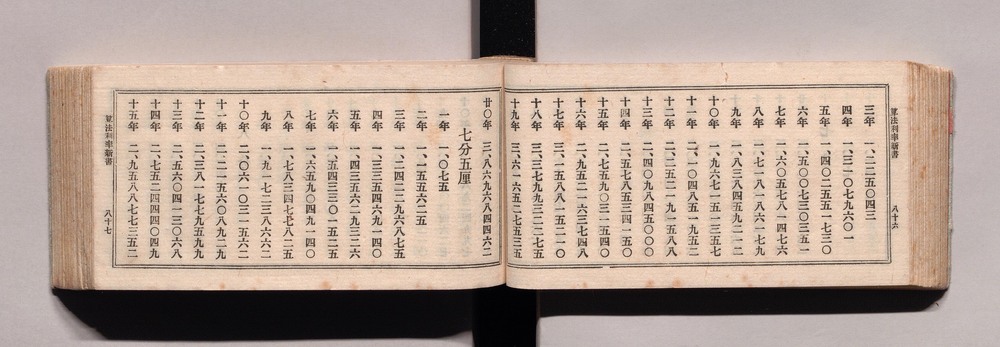 算法利率新書　八十六
三年　一、二二五〇四三
四年　一、三一〇七九六〇一
五年　一、四〇二五五一七三〇
六年　一、五〇〇七三〇三五一
七年　一、六〇五七八一四七六
八年　一、七一八一八六一七九
九年　一、八三八四五九二一二
十〇年　一、九六七一五一三五七
十一年　二、一〇四八五一九五二
十二年　二、二五二一九一五八八
十三年　二、四〇九八四五〇〇〇
十四年　二、五七八五三四一五〇
十五年　二、七五九〇三一五四〇
十六年　二、九五二一六三七四八
十七年　三、一五八八一五二一〇
十八年　三、三七九九三二二七五
十九年　三、六一六五二七五三五
廿〇年　三、八六九六八四四六二
七分五厘
一年　一、〇七五
二年　一、一五五六二五
三年　一、二四二二九六八七五
四年　一、三三五四六九一四〇
五年　一、四三五六二九三二六
六年　一、五四三三〇一五二五
七年　一、六五九〇四九一四〇
八年　一、七八三四七七八二五
九年　一、九一七二三八六六二
十〇年　二、〇六一〇三一五六二
十一年　二、二一五六〇八九二九
十二年　二、三八一七七九五九九
十三年　二、五六〇四一三〇六八
十四年　二、七五二四四四〇四九
十五年　二、九五八八七七三五二
算法利率新書　八十七